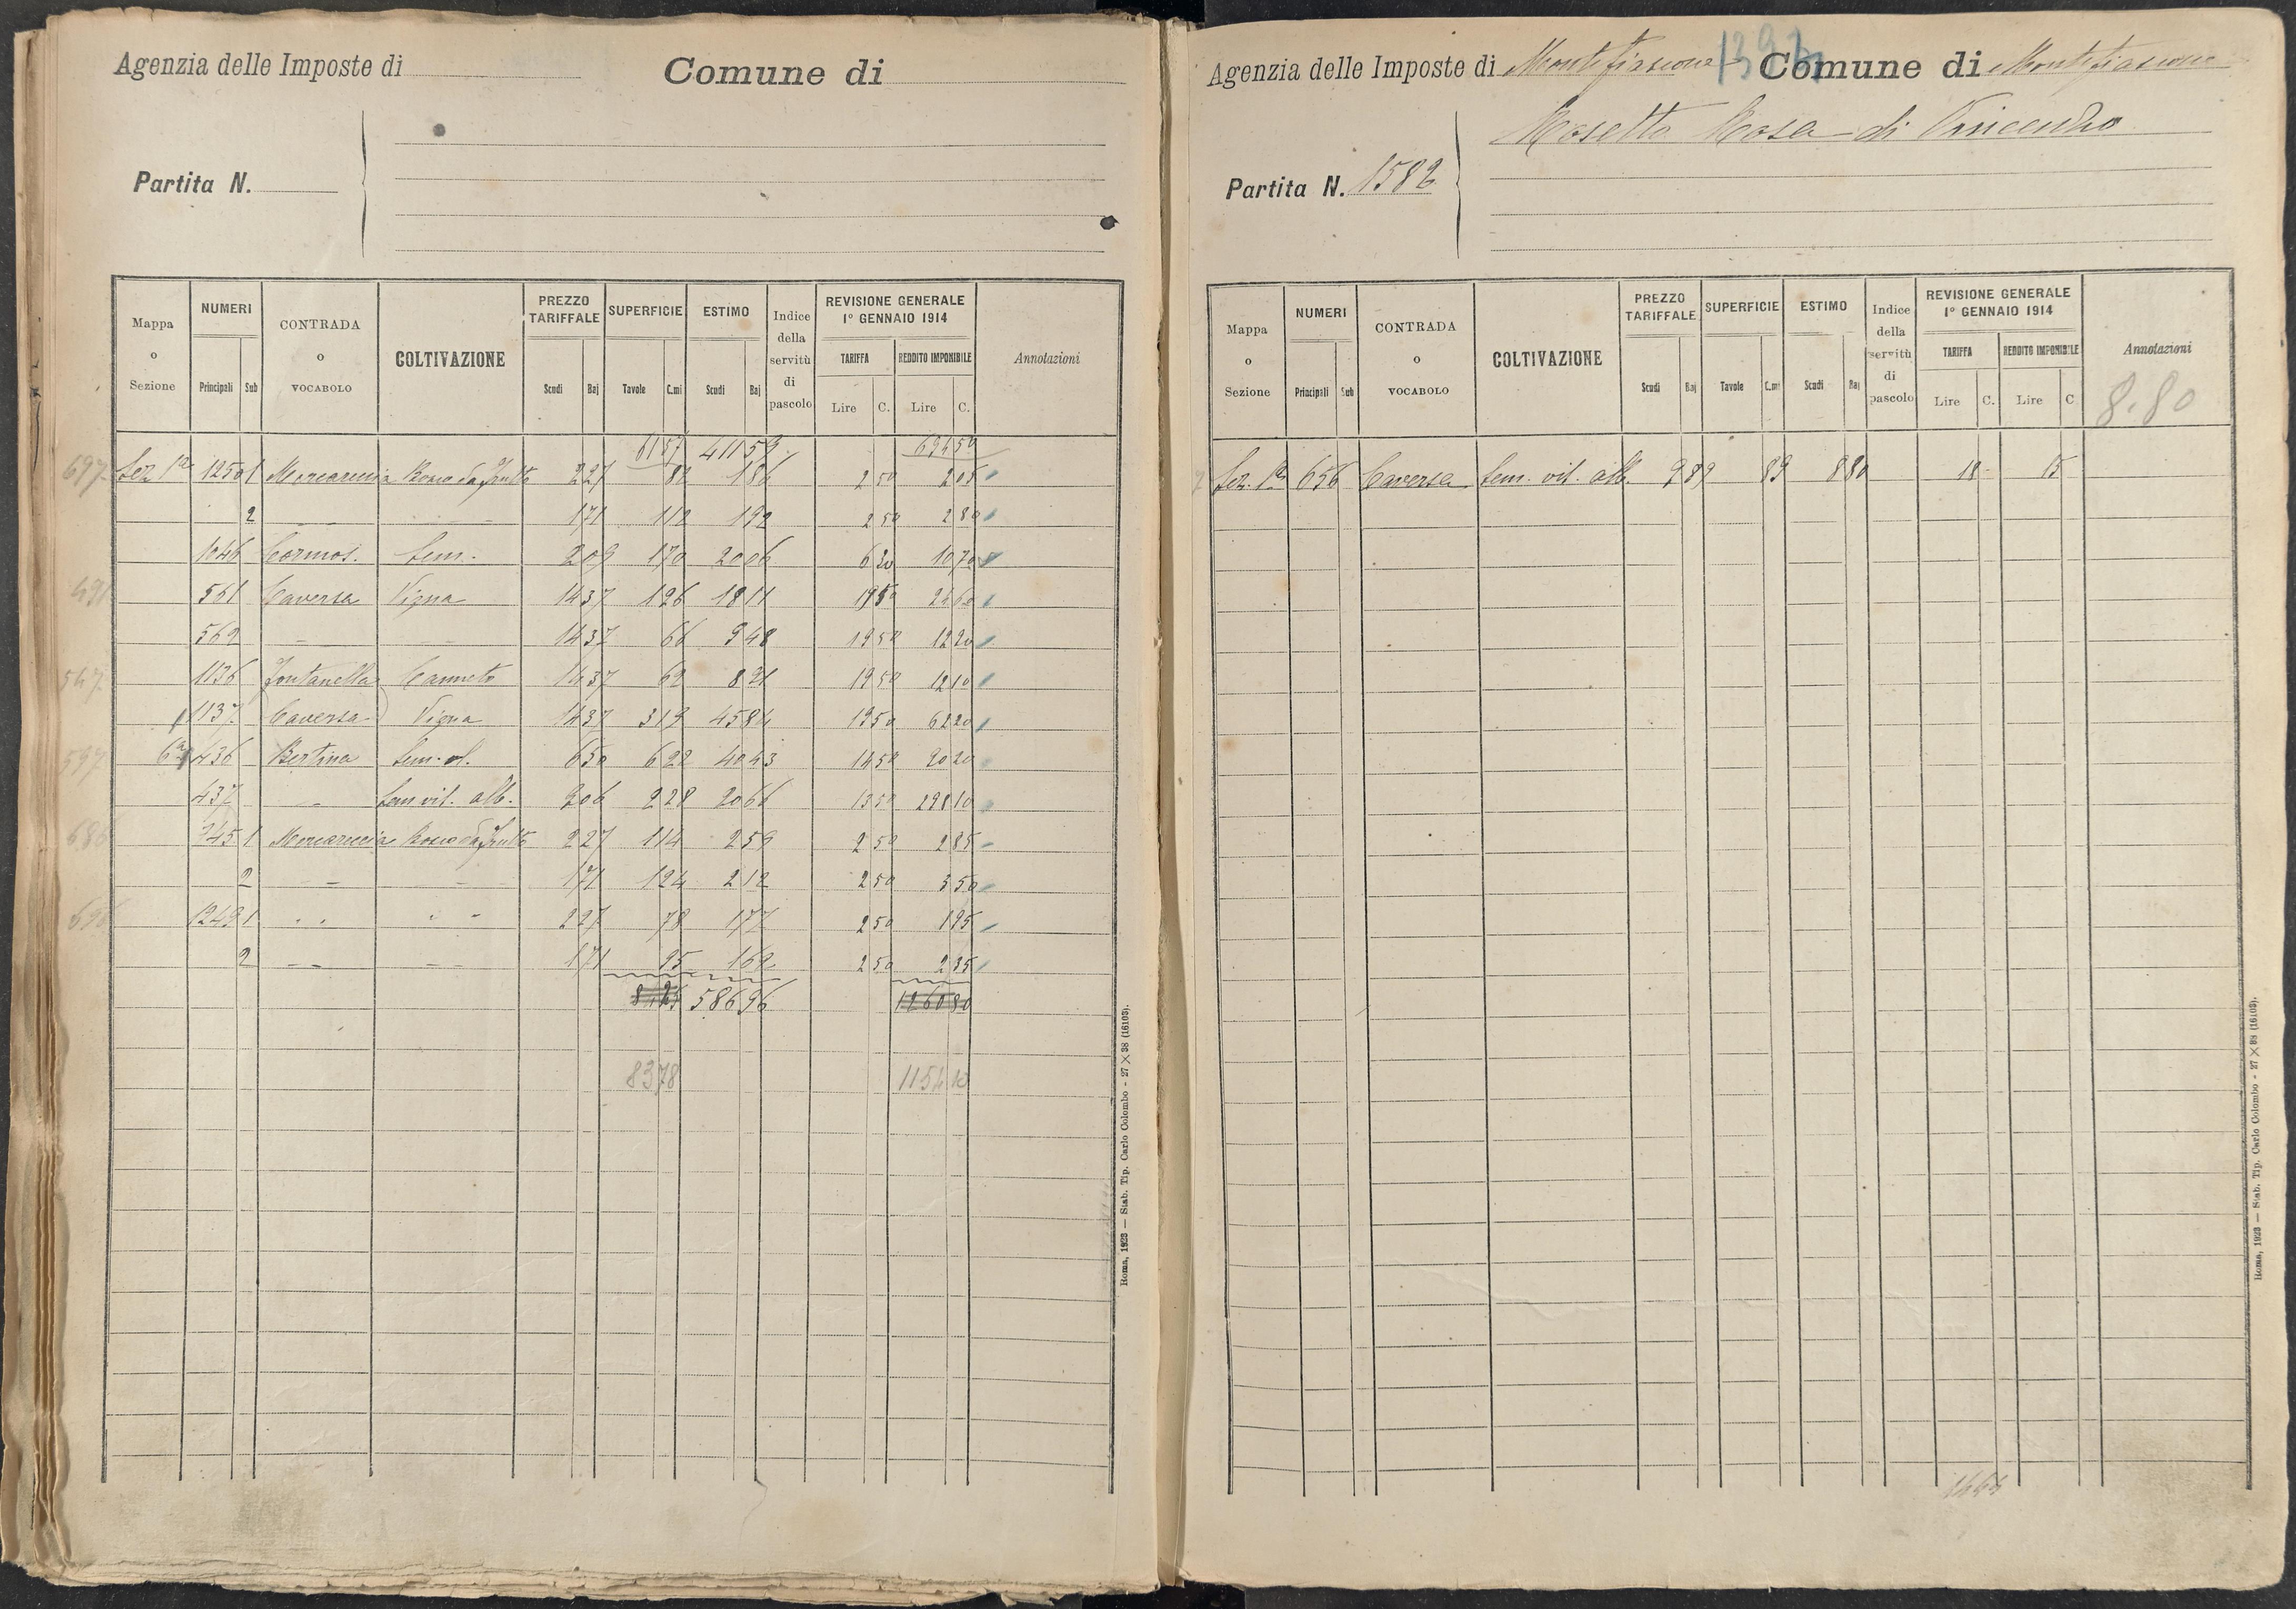 Agenzia delle Imposte di
Comune di
Partita N.
Mappa o Sezione
NUMERI
Principali Sub
CONTRADA o VOCABOLO
COLTIVAZIONE
PREZZO TARIFFALE
Scudi Baj
SUPERFICIE
Tavole C.mi
ESTIMO
Scudi Baj
Indice della servitù di pascolo
REVISIONE GENERALE 1° GENNAIO 1914
TARIFFA
Lire C.
REDDITO IMPONIBILE
Lire C.
Annotazioni
8157 41159 69450
697 Sez 1a 1250 1 Mercareccia Bosco da frutto 227 82 186 2 50 2 05
2 — — 171 112 192 2 50 2 80
1046 Cormos. Sem. 209 170 2006 6 30 10 70
561 Caversa Vigna 1437 126 1811 19 50 24 60
562 — — 1437 66 948 19 50 12 20
547 1136 Fontanella Canneto 1437 62 891 19 50 12 10
1137 Caversa Vigna 1437 319 4584 19 50 62 20
597 6a 436 Bertina Sem. ol. 650 622 4043 14 50 20 20
437 — Sem vit. alb. 906 228 2066 13 50 298 10
686 745 1 Mercareccia Bosco da frutto 227 114 259 2 50 2 85
2 — — 171 124 212 2 50 3 50
696 1249 1 " " 227 78 177 2 50 1 95
2 — — 171 95 162 2 50 2 35
58696 126080
8378 1154 10
Roma, 1923 — Stab. Tip. Carlo Colombo - 27 × 38 (16103).
Agenzia delle Imposte di Montefiascone
Comune di Montefiascone
Rosetto Rosa di Vincenzo
Partita N. 1582
Mappa o Sezione
NUMERI
Principali Sub
CONTRADA o VOCABOLO
COLTIVAZIONE
PREZZO TARIFFALE
Scudi Baj
SUPERFICIE
Tavole C.mi
ESTIMO
Scudi Baj
Indice della servitù di pascolo
REVISIONE GENERALE 1° GENNAIO 1914
TARIFFA
Lire C.
REDDITO IMPONIBILE
Lire C
Annotazioni
8.80
Sez. 1a 656 Caversa Sem. vit. alb. 989 89 880 18 15
Roma, 1923 — Stab. Tip. Carlo Colombo - 27 × 38 (16103).